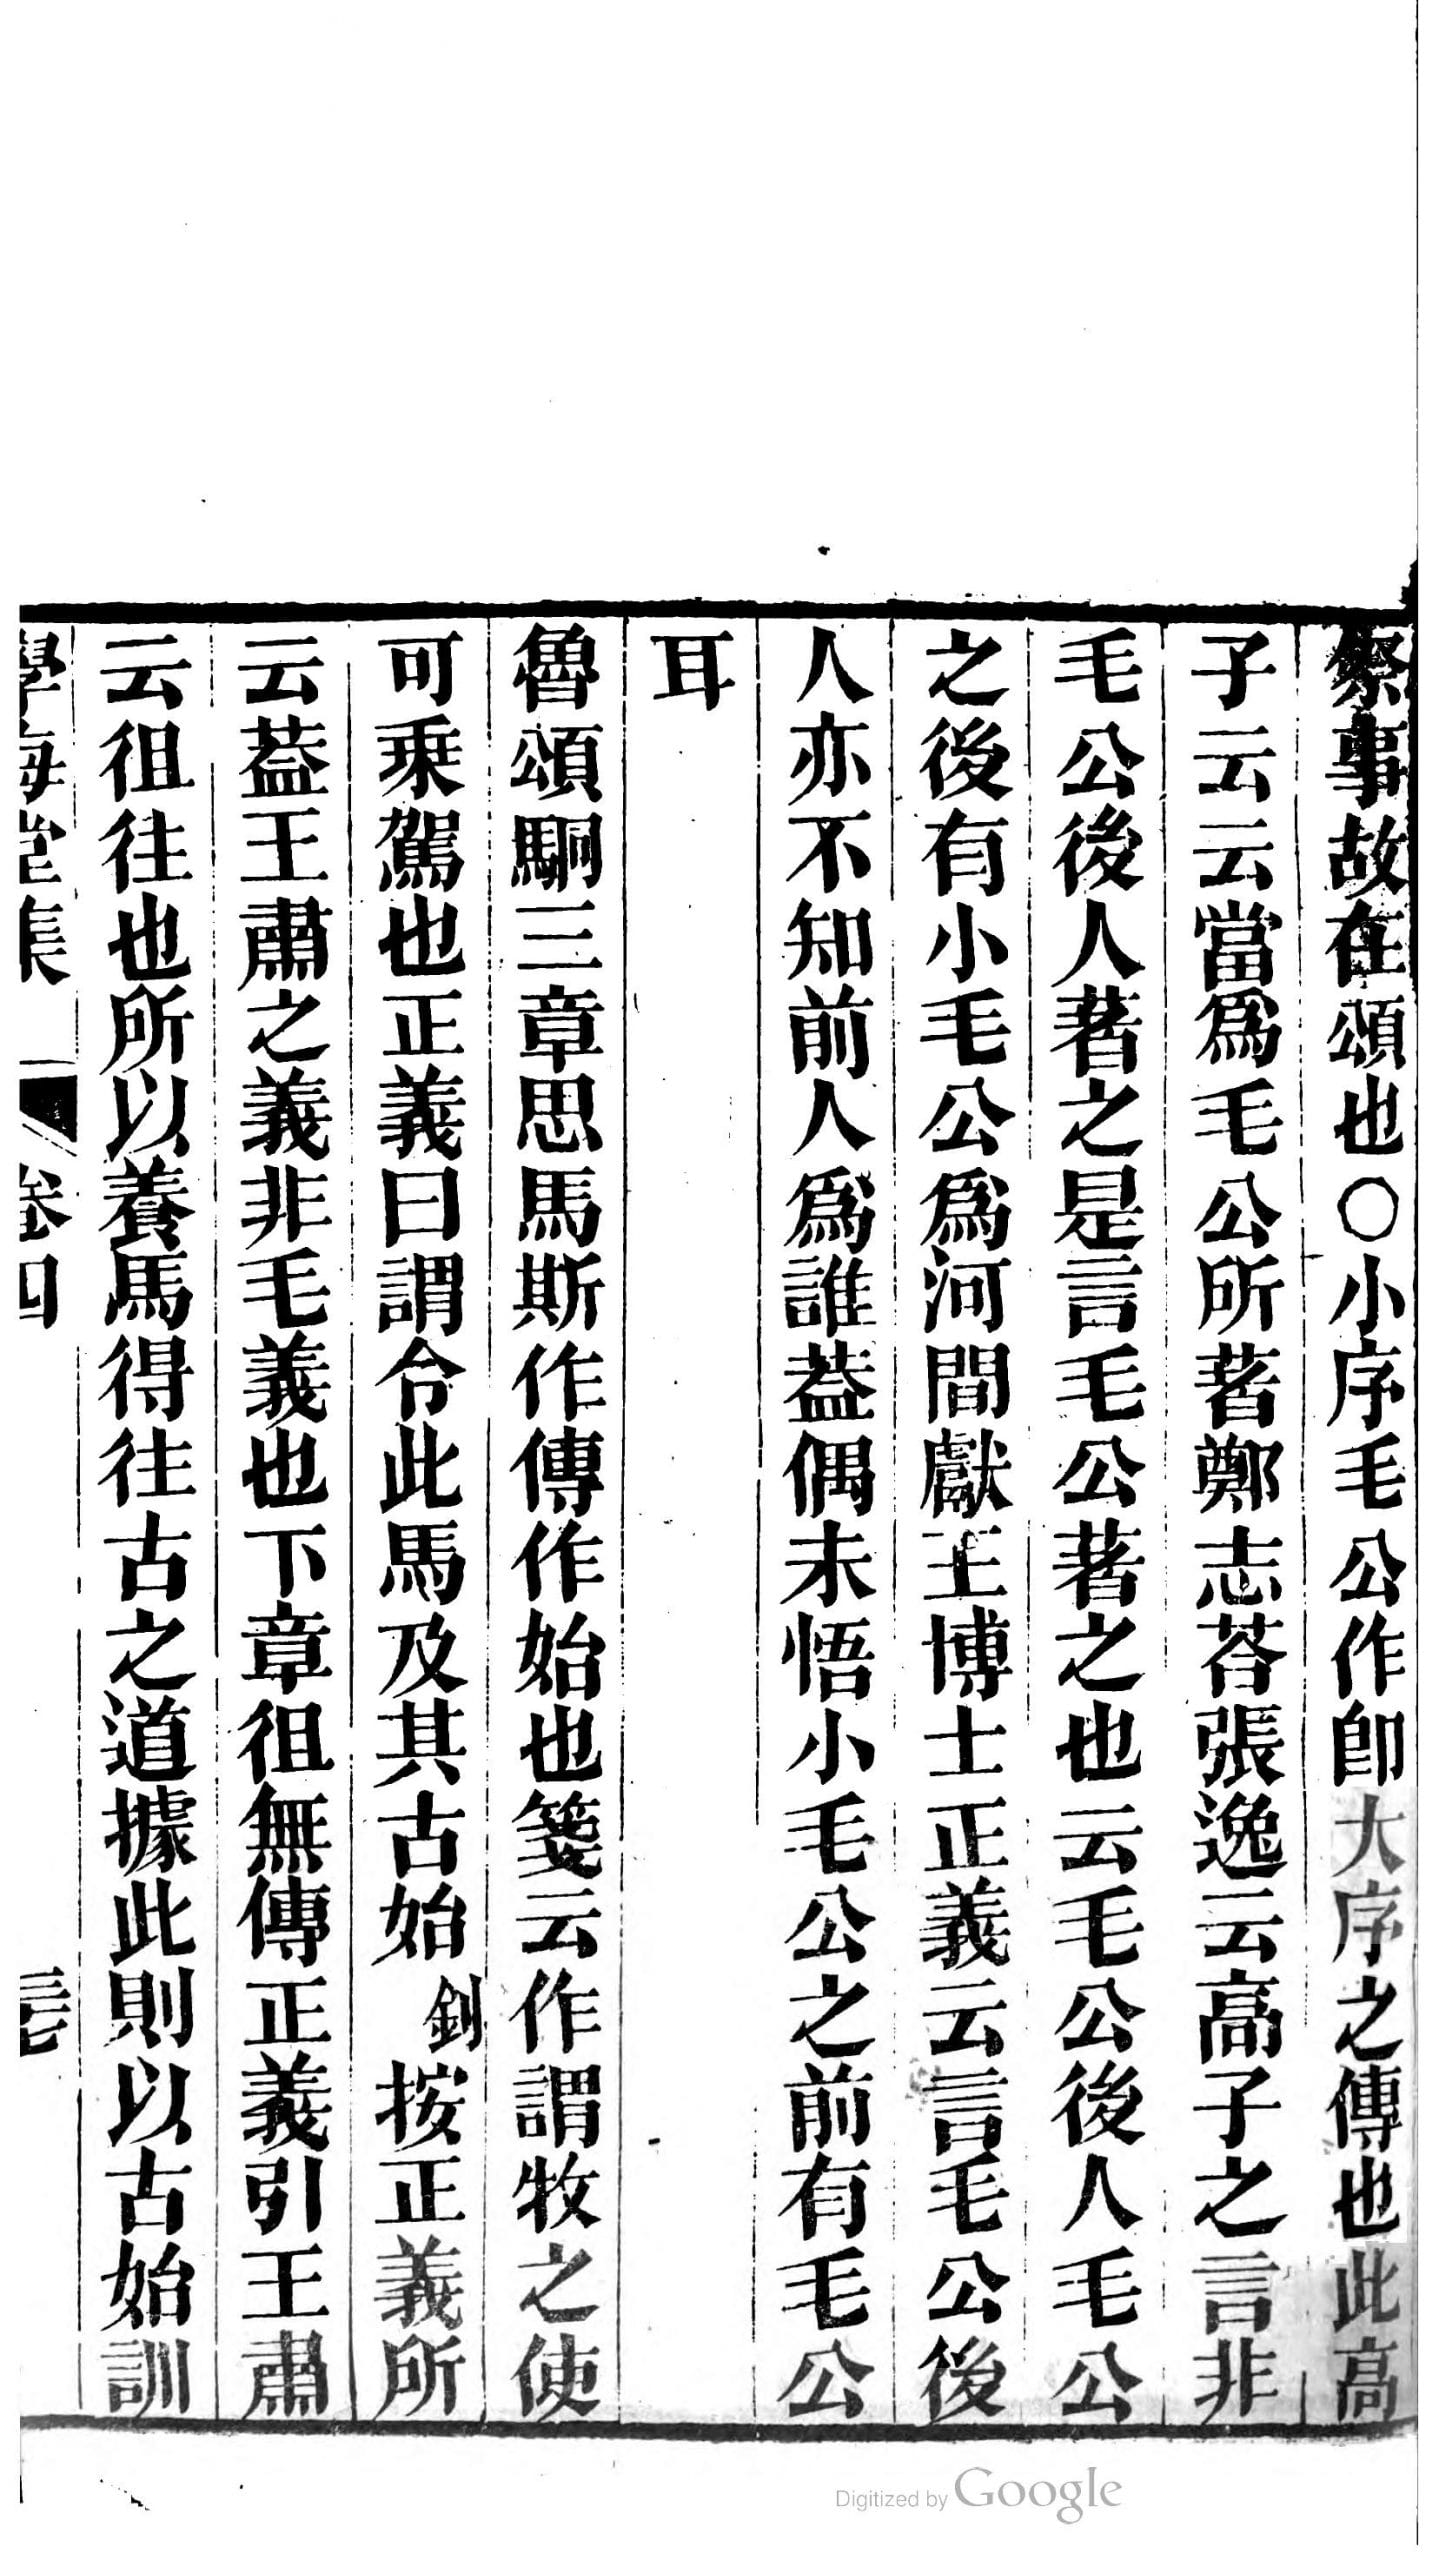 祭事故在頌也○小序毛公作即大序之傳也此高
子云云當爲毛公所著鄭志荅張逸云高子之言非
毛公後人著之是言毛公著之也云毛公後人毛公
之後有小毛公爲河間獻王博士正義云言毛公後
人亦不知前人爲誰葢偶未悟小毛公之前有毛公
耳
魯頌駉三章思馬斯作傳作始也箋云作謂牧之使
可乘駕也正義曰謂令此馬及其古始釗按正義所
云葢王肅之義非毛義也下章徂無傳正義引王肅
云徂往也所以養馬得往古之道據此則以古始訓
學海堂集 卷四
Digitized by Google